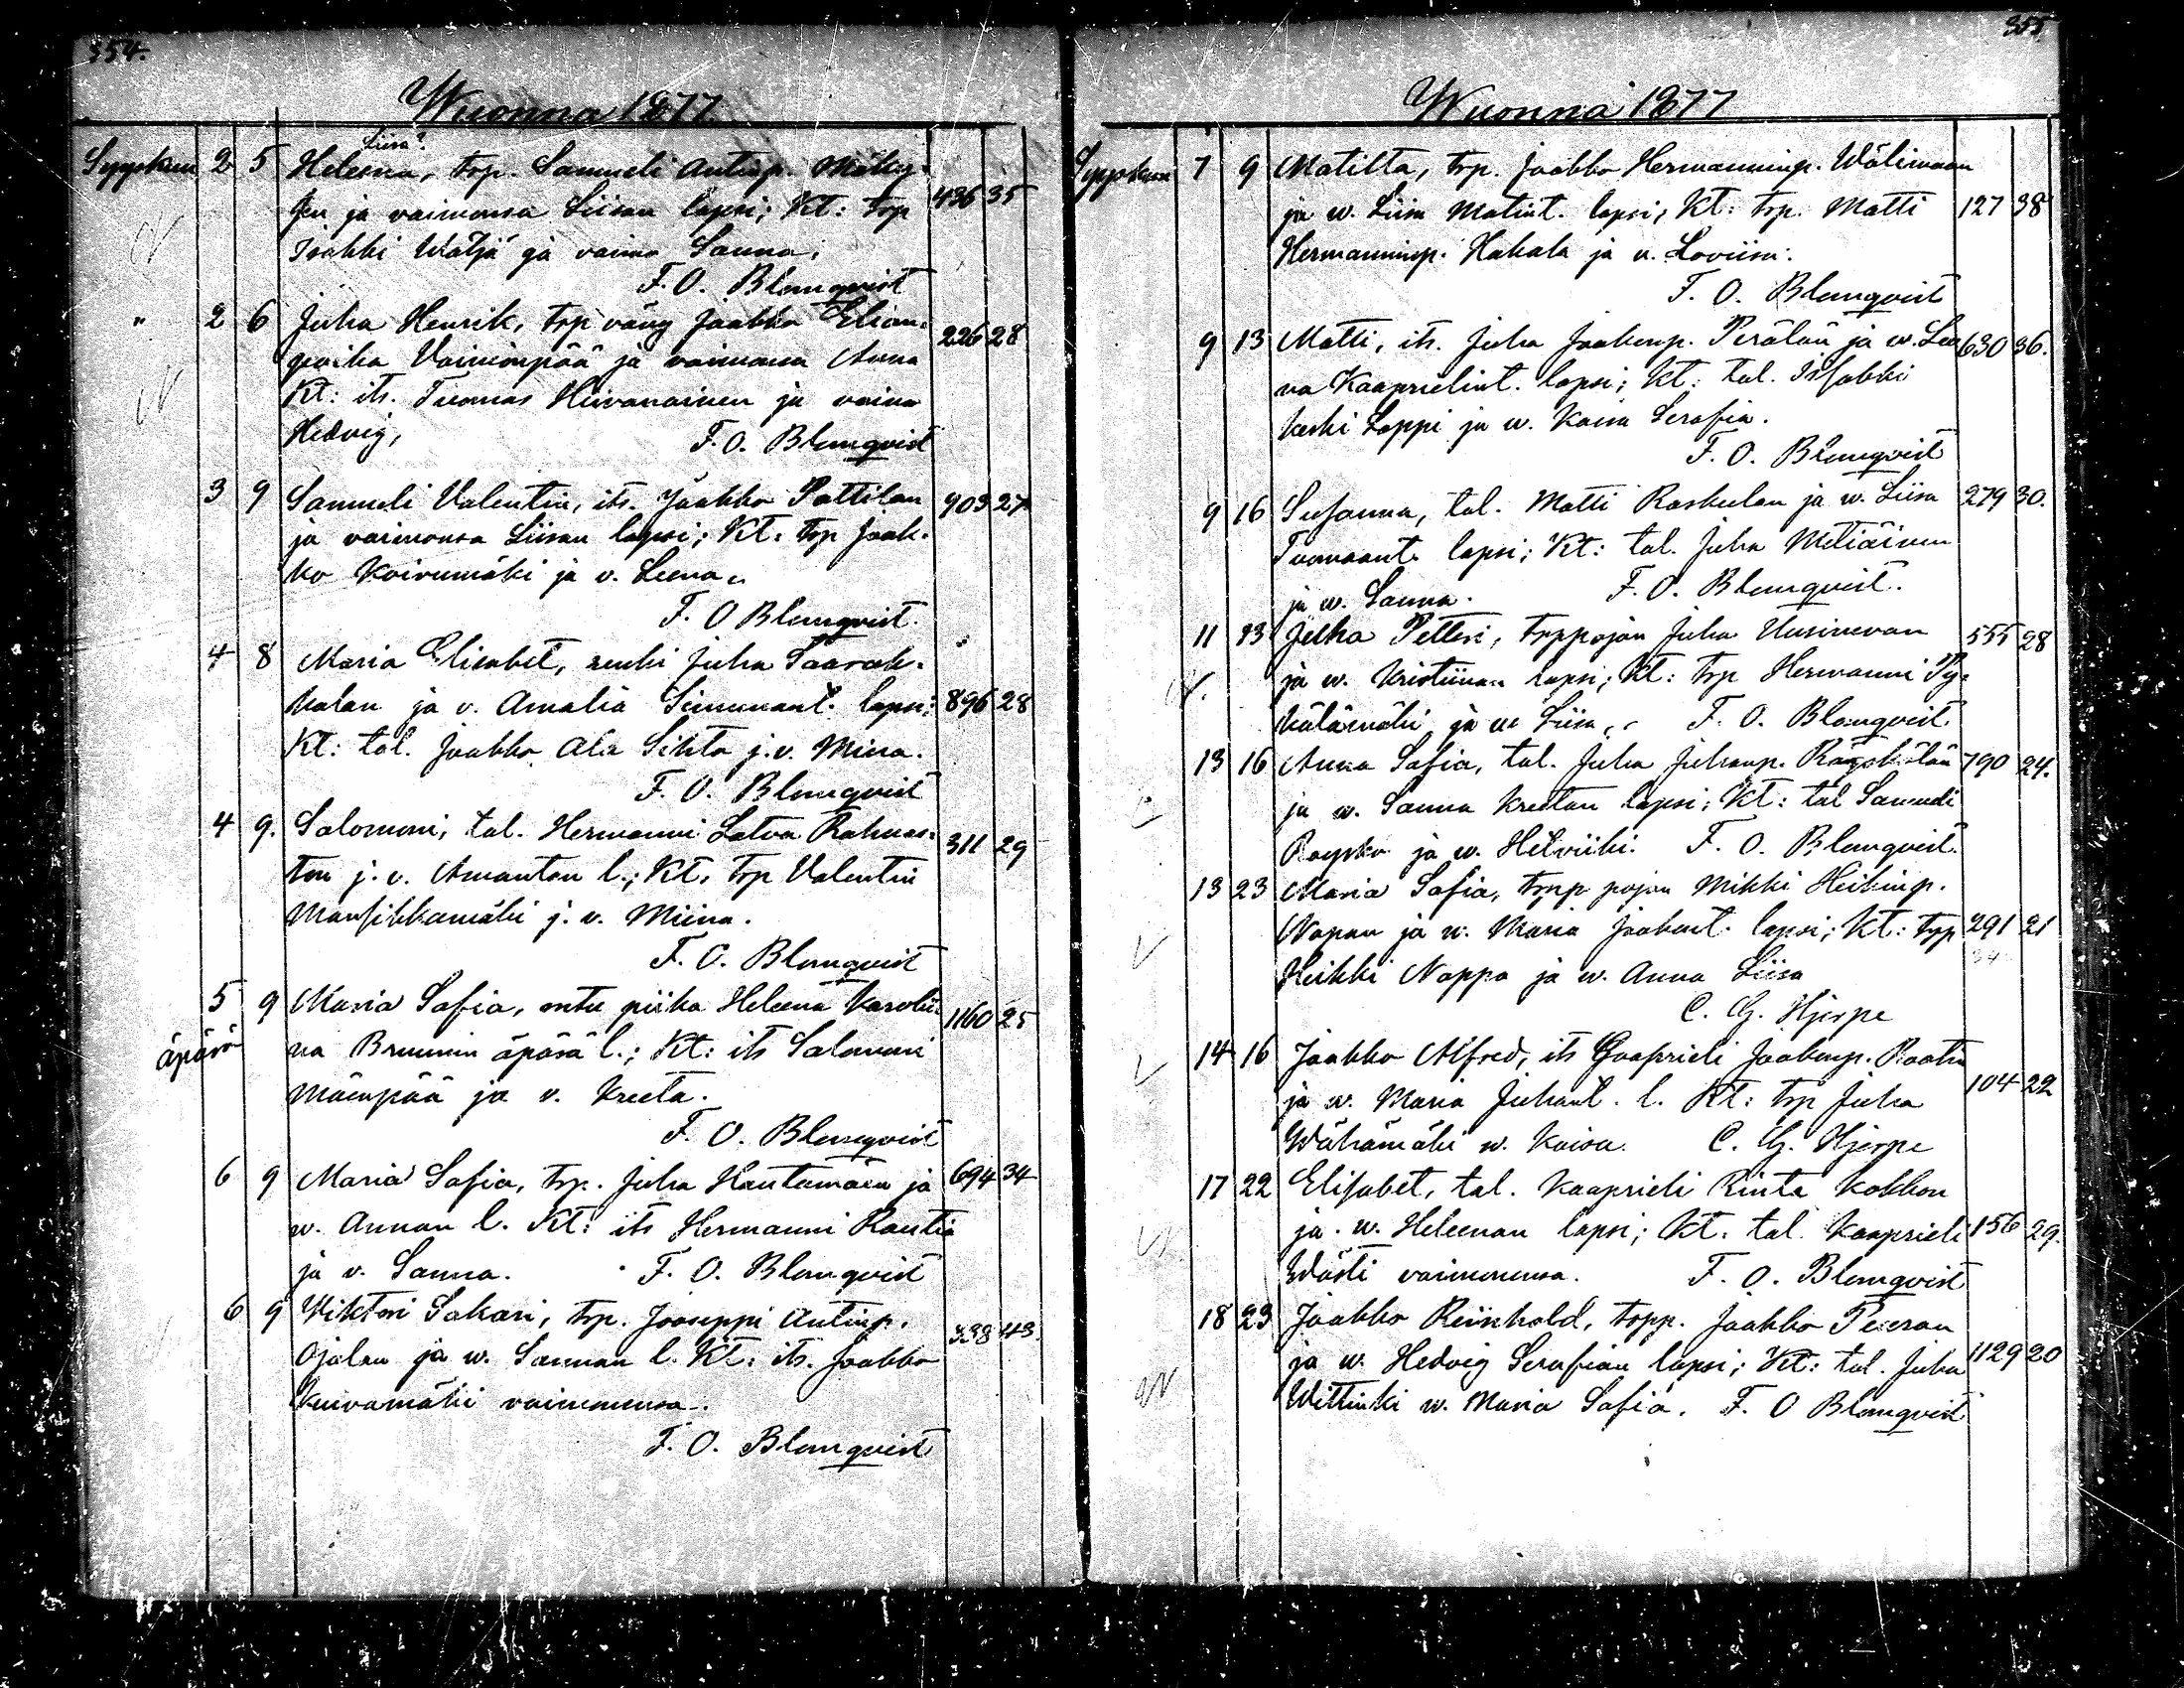 354.
Wuonna 1877
Liisa?
Syyskuu 2 5 Heleena, trp. Samueli Antinp. Mätäs-
jen ja vaimonsa Liisan lapsi; Kt: trp 436 35
Isakki Wäljä ja vaimo Sanna;
F. O. Blomqvist
" 2 6 Juha Henrik, trp väug Jaakko Elian-
poika Vainionpää ja vaimonsa Anna 226 28
Kt: its. Tuomas Hiivanainen ja vaimo
Hedvig, F. O. Blomqvist
3 9 Samueli Valentin, its. Jaakko Pattilan 903 27
ja vaimonsa Liisan lapsi; Kt: trp Jaak-
ko Koivumäki ja v. Leena.
F. O Blomqvist.
4 8 Maria Elisabet, renki Juha Saarak-
kalan ja v. Amalia Simunant. lapsi; 896 28
Kt: tal. Jaakko Ala Sihto j. v. Miina.
F. O. Blomqvist
4 9. Salomoni, tal. Hermanni Latva Rahnas-
ton j. v. Amantan l.; Kt: trp Valentin 311 29
Mansikkamäki j. v. Miina.
F. O. Blomqvist
5 9 Maria Safia, entu piika Heleena Karolii-
äpärä na Bruunin äpärä l.; Kt: its Salomoni 1160 25
Mäenpää ja v. Kreeta.
F. O. Blomqvist
6 9 Maria Safia, trp. Juha Hautamäen ja 694 34
w. Annan l. Kt: its Hermanni Rautio
ja v. Sanna. F. O. Blomqvist
6 9 Wiktori Sakari, trp. Jooseppi Antinp.
Ojalan ja w. Sannan l. Kt: its. Jaakko 338 43.
Kuivamäki vaimonensa.
F. O. Blomqvist
355
Wuonna 1877
Syyskuu 7 9 Matilta, trp. Jaakko Hermanninp. Wälimaan
ja w. Liisa Matint. lapsi; Kt: trp. Matti 127 38
Hermanninp. Hakala ja v. Loviisa.
F. O. Blomqvist
9 13 Matti, its. Juha Jaakonp. Perälän ja w. Lee 630 36.
na Kaaprielint. lapsi; Kt: tal. Isakki
Keski Lappi ja w. Kaisa Serafia.
F. O. Blomqvist
9 16 Susanna, tal. Matti Raskulan ja w. Liisa 279 30.
Tuomaant. lapsi; Kt: tal. Juha Metiäinen
ja w. Sanna. F. O. Blomqvist.
11 13 Juha Petteri, trppojan Juha Uusinevan 555 28
ja w. Kristiinan lapsi; Kt: trp Hermanni Py-
kälämäki ja w Liisa. F. O. Blomqvist
13 16 Anna Safia, tal. Juha Juhanp. Räyskälän 790 24.
ja w. Sanna Kreetan lapsi; Kt: tal Samueli
Raysko ja w. Hetviiki. F. O. Blomqvist.
13 23 Maria Safia, trnp pojan Mikki Heikinp.
Napan ja w. Maria Jaakont. lapsi; Kt: trp 291 21
Heikki Nappa ja w. Anna Liisa
C. G. Hjerpe
14 16 Jaakko Alfred, its Gaaprieli Jaakonp. Raatin
ja w. Maria Juhant. l. Kt: trp Juha 104 22
Wähämäki w. Kaisa. C. G. Hjerpe
17 22 Elisabet, tal. Kaaprieli Rinta Kokkon
ja w. Heleenan lapsi; Kt. tal. Kaaprieli 156 29.
Wästi vaimonensa. F. O. Blomqvist
18 23 Jaakko Reinhold, trpp. Jaakko Peeran
ja w. Hedvig Serafian lapsi; Kt: tal. Juha 1129 20
Wittinki w. Maria Safia. F. O Blomqvist